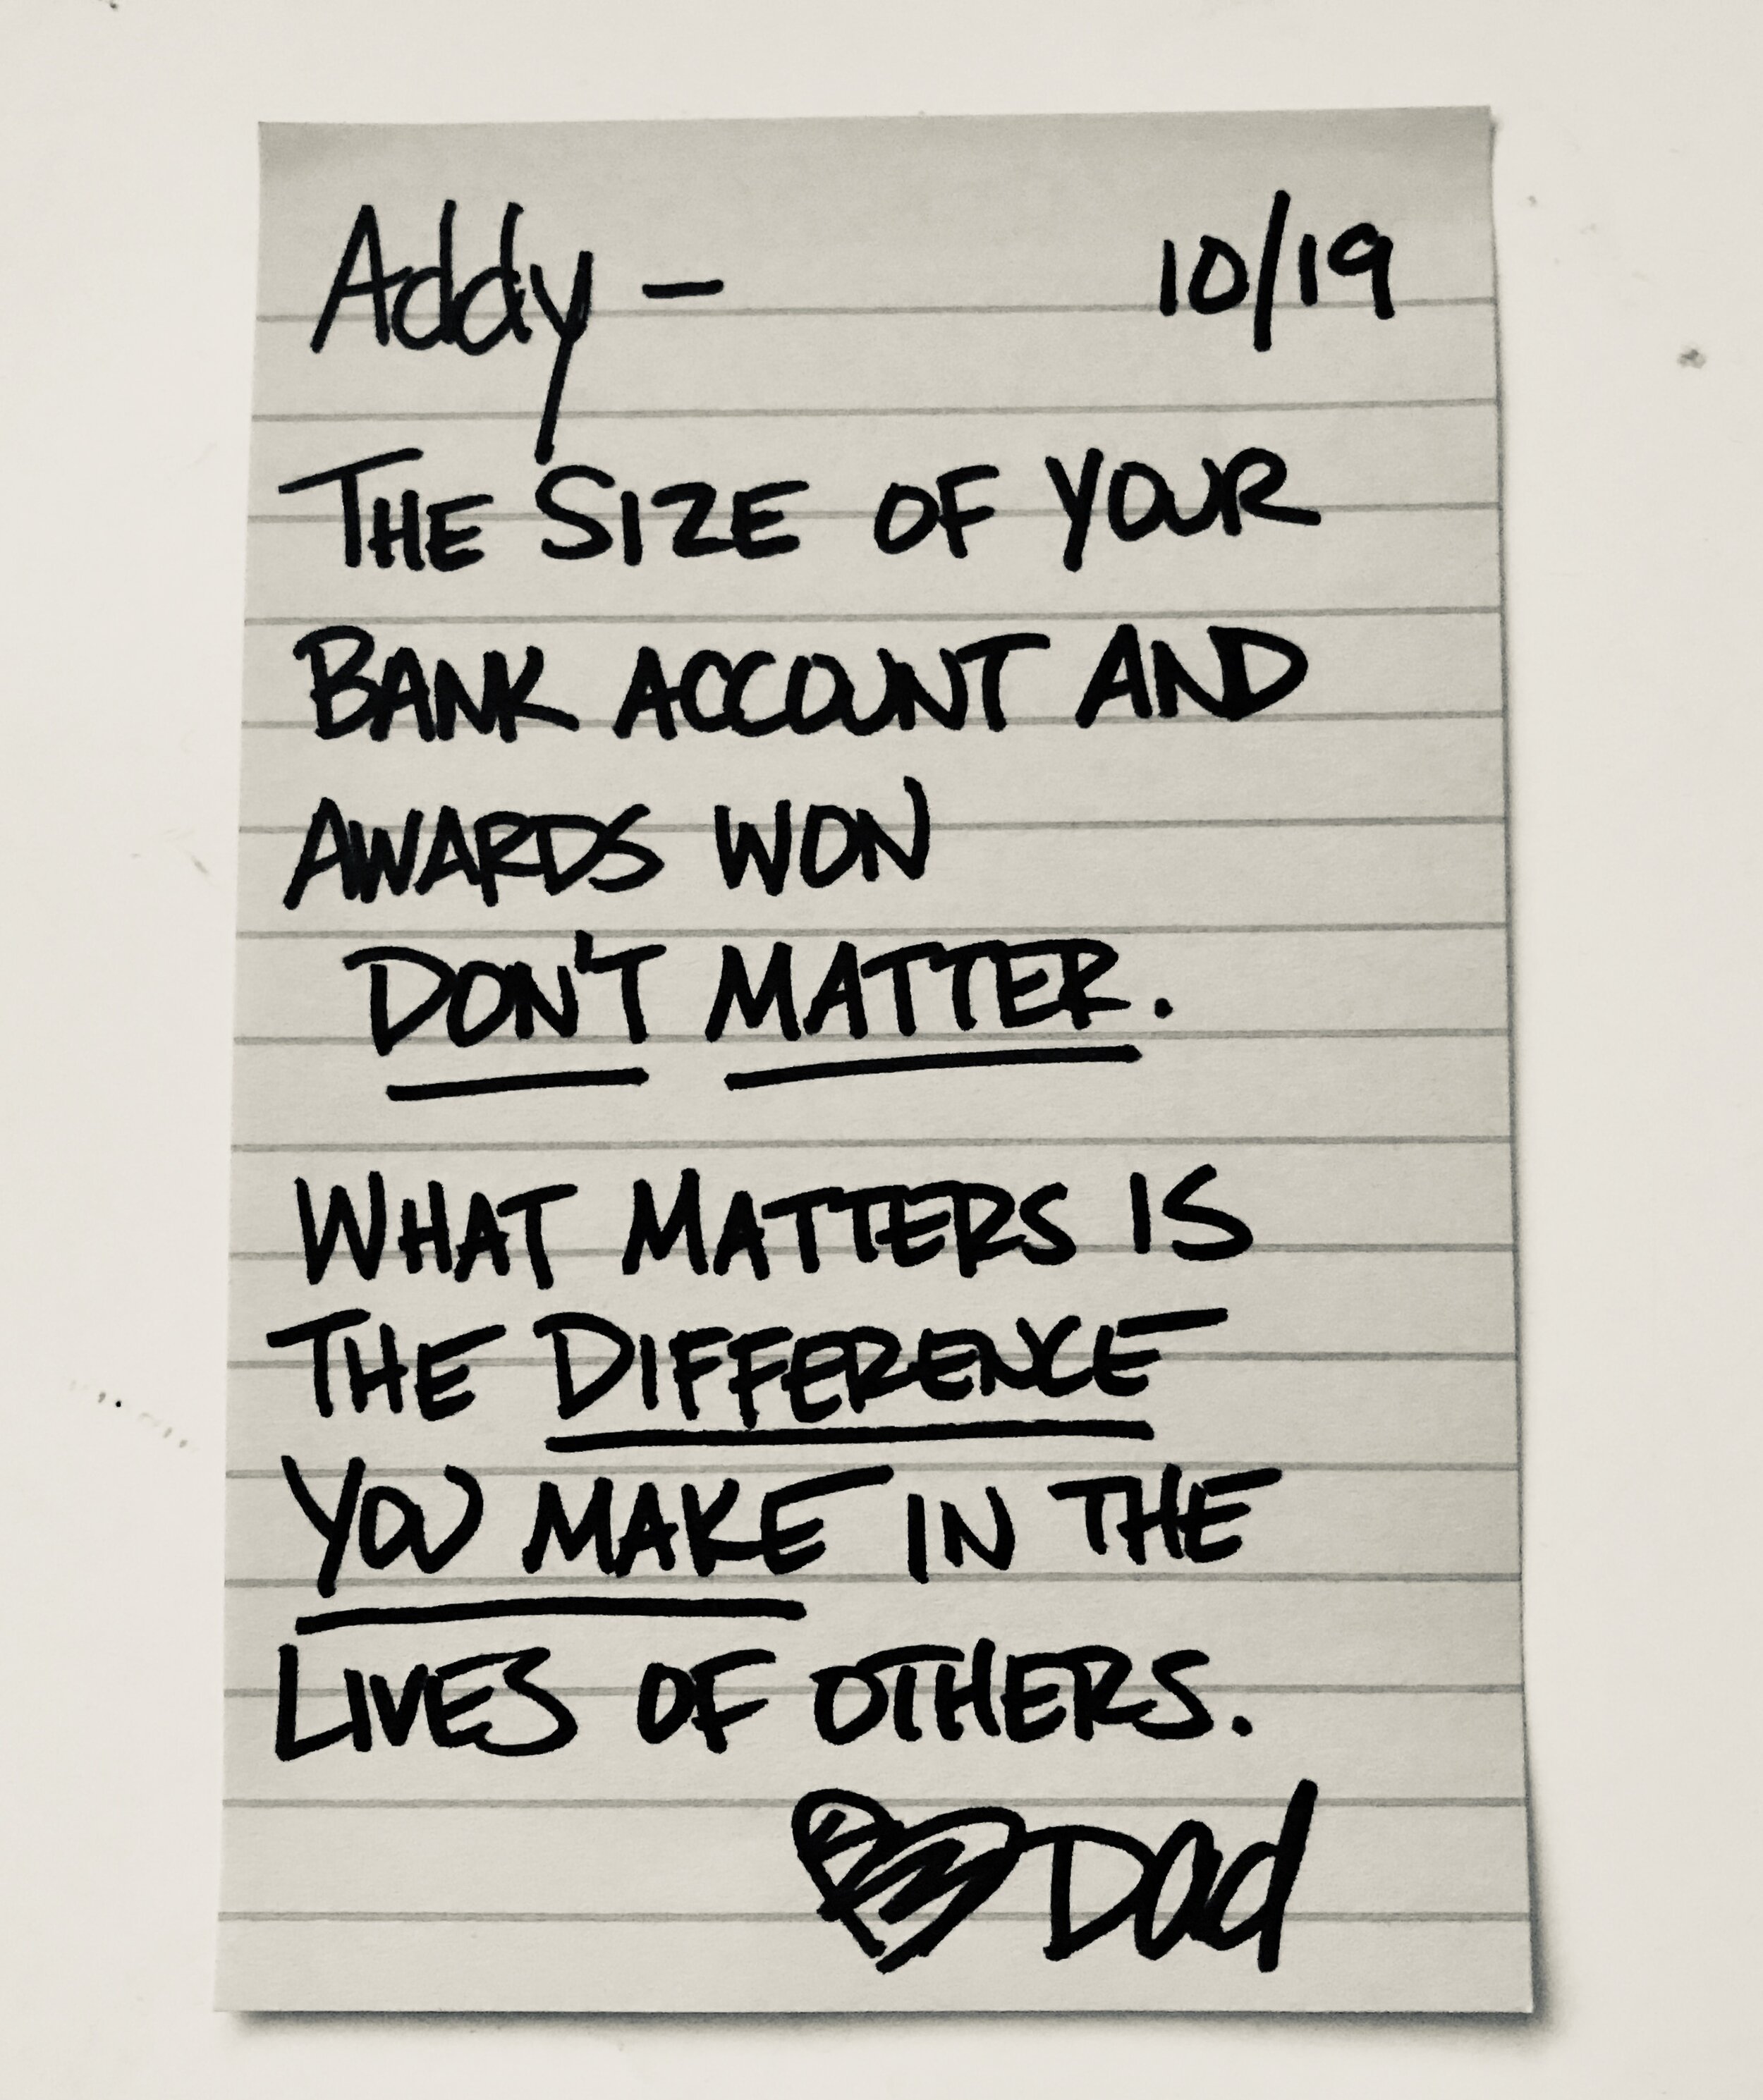 Addy – 10/19
THE SIZE OF YOUR
BANK ACCOUNT AND
AWARDS WON
DON'T MATTER.
WHAT MATTERS IS
THE DIFFERENCE
YOU MAKE IN THE
LIVES OF OTHERS.
Dad